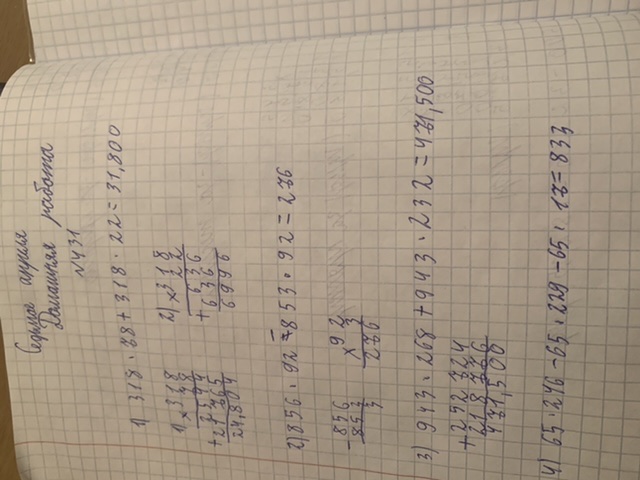 Седьмое апреля
Домашняя работа
№431
1) 318 · 78 + 318 · 22 = 31,800
1) × 318
78
2) × 318
22
636
+ 636
6996
24,804
2) 856 · 92 - 853 · 92 = 276
- 856
853
3
× 92
3
276
3) 943 · 268 + 943 · 232 = 471,500
+ 252 724
218 776
471,500
4) 65 · 246 - 65 · 229 - 65 · 17 = 833